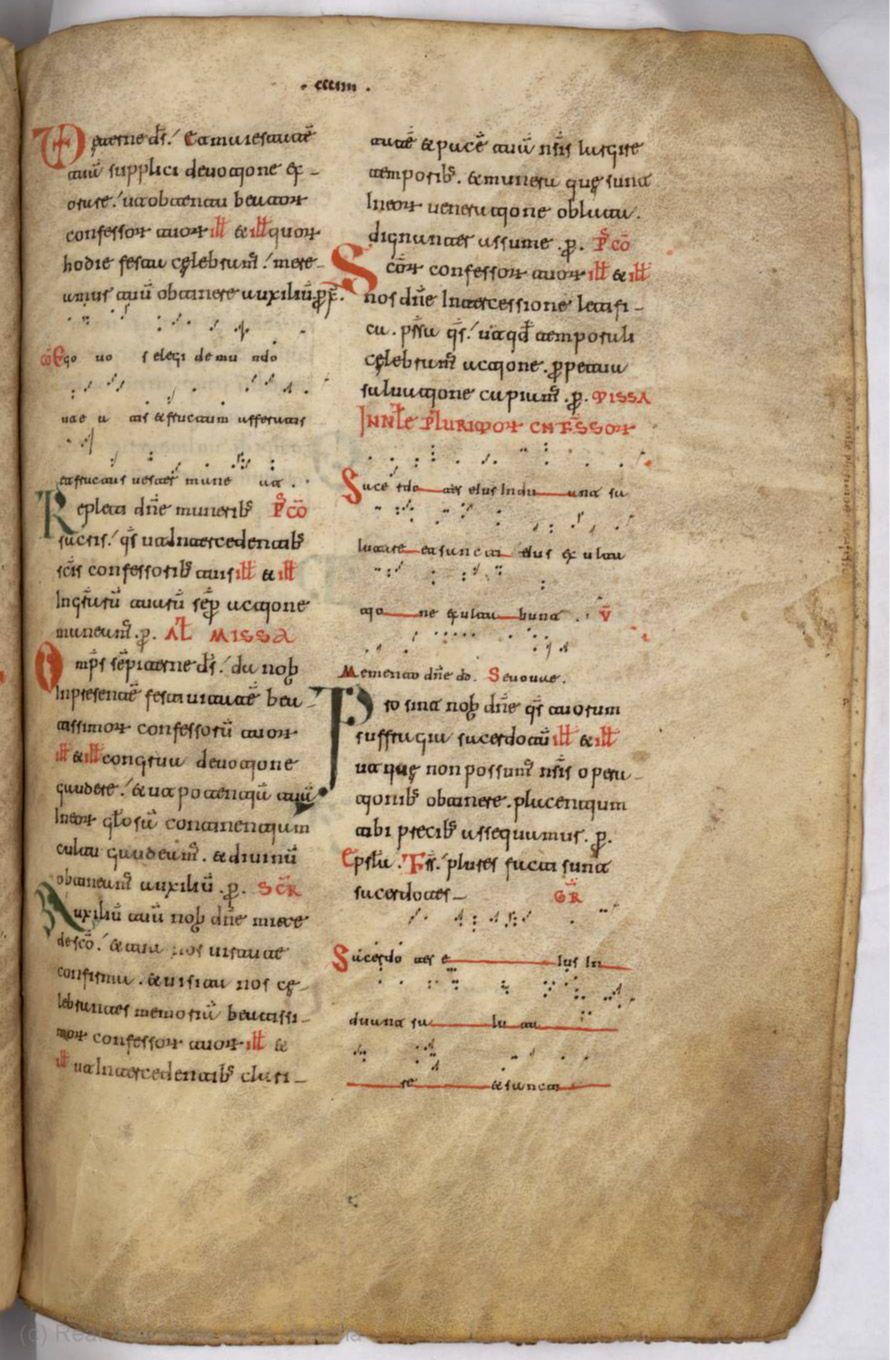 . cccım .
peterne ds. Et maiestatē
tuā supplici deuotione ex-
orare. ut obtentu beator
confessor tuor ill & ill quor
hodie festa celebram. mere-
amur tuū obtinere auxiliū. p.
cō Ego uo s elegi de mu ndo
ut e a tis & fructum afferatis
& fructus uester mane at.
Repleti dñe muneribꝰ Pꝰcō
sacris. qs ut intercedentibꝰ
scis confessoribꝰ tuis ill & ill
In grarū tuarū sep actione
maneam. p. Al MISSA
Omps sempiterne ds. da nob
In presentē festiuitatē bea-
tissimor confessorū tuor
ill & ill congrua deuotione
gaudere. & ut potentiā tuā
In eor gliosā continentium
cultu laudeam. & diuinū
obtineam auxiliū. p. SCR
Auxiliū tuū nob dñe mitte
de sco. & tua nos uirtute
confirma. & uisita nos ce-
lebrantes memoriā beatissi-
mor confessor tuor ill &
ill ut Intercedentibꝰ clari-
tatē & pacē tuā nris largire
temporibꝰ. & munera que sunt
In eor ueneratione oblata.
dignanter assume. p. Pꝰcō
Scor confessor tuor ill & ill
nos dñe Intercessione letifi-
ca. psta qs. ut qd temporali
celebram actione. ppetua
saluatione capiam. p. MISSA
IN Nat Plurimor CNFSSor
Sace rdo tes eius Indu ant sa
lutare & sancti eius ex ulta
tio ne exulta bunt . V
Memento dñe dd. Seuouae.
Pro sint nob dñe qs tuorum
suffragia sacerdotū ill & ill
ut que non possum nris opera-
tionibꝰ obtinere. placentium
tibi precibꝰ assequamur. p.
Epstla. Frs. plures facti sunt
sacerdotes- GR
Sacerdo tes e ius In
duant sa lu ta
re & sancti